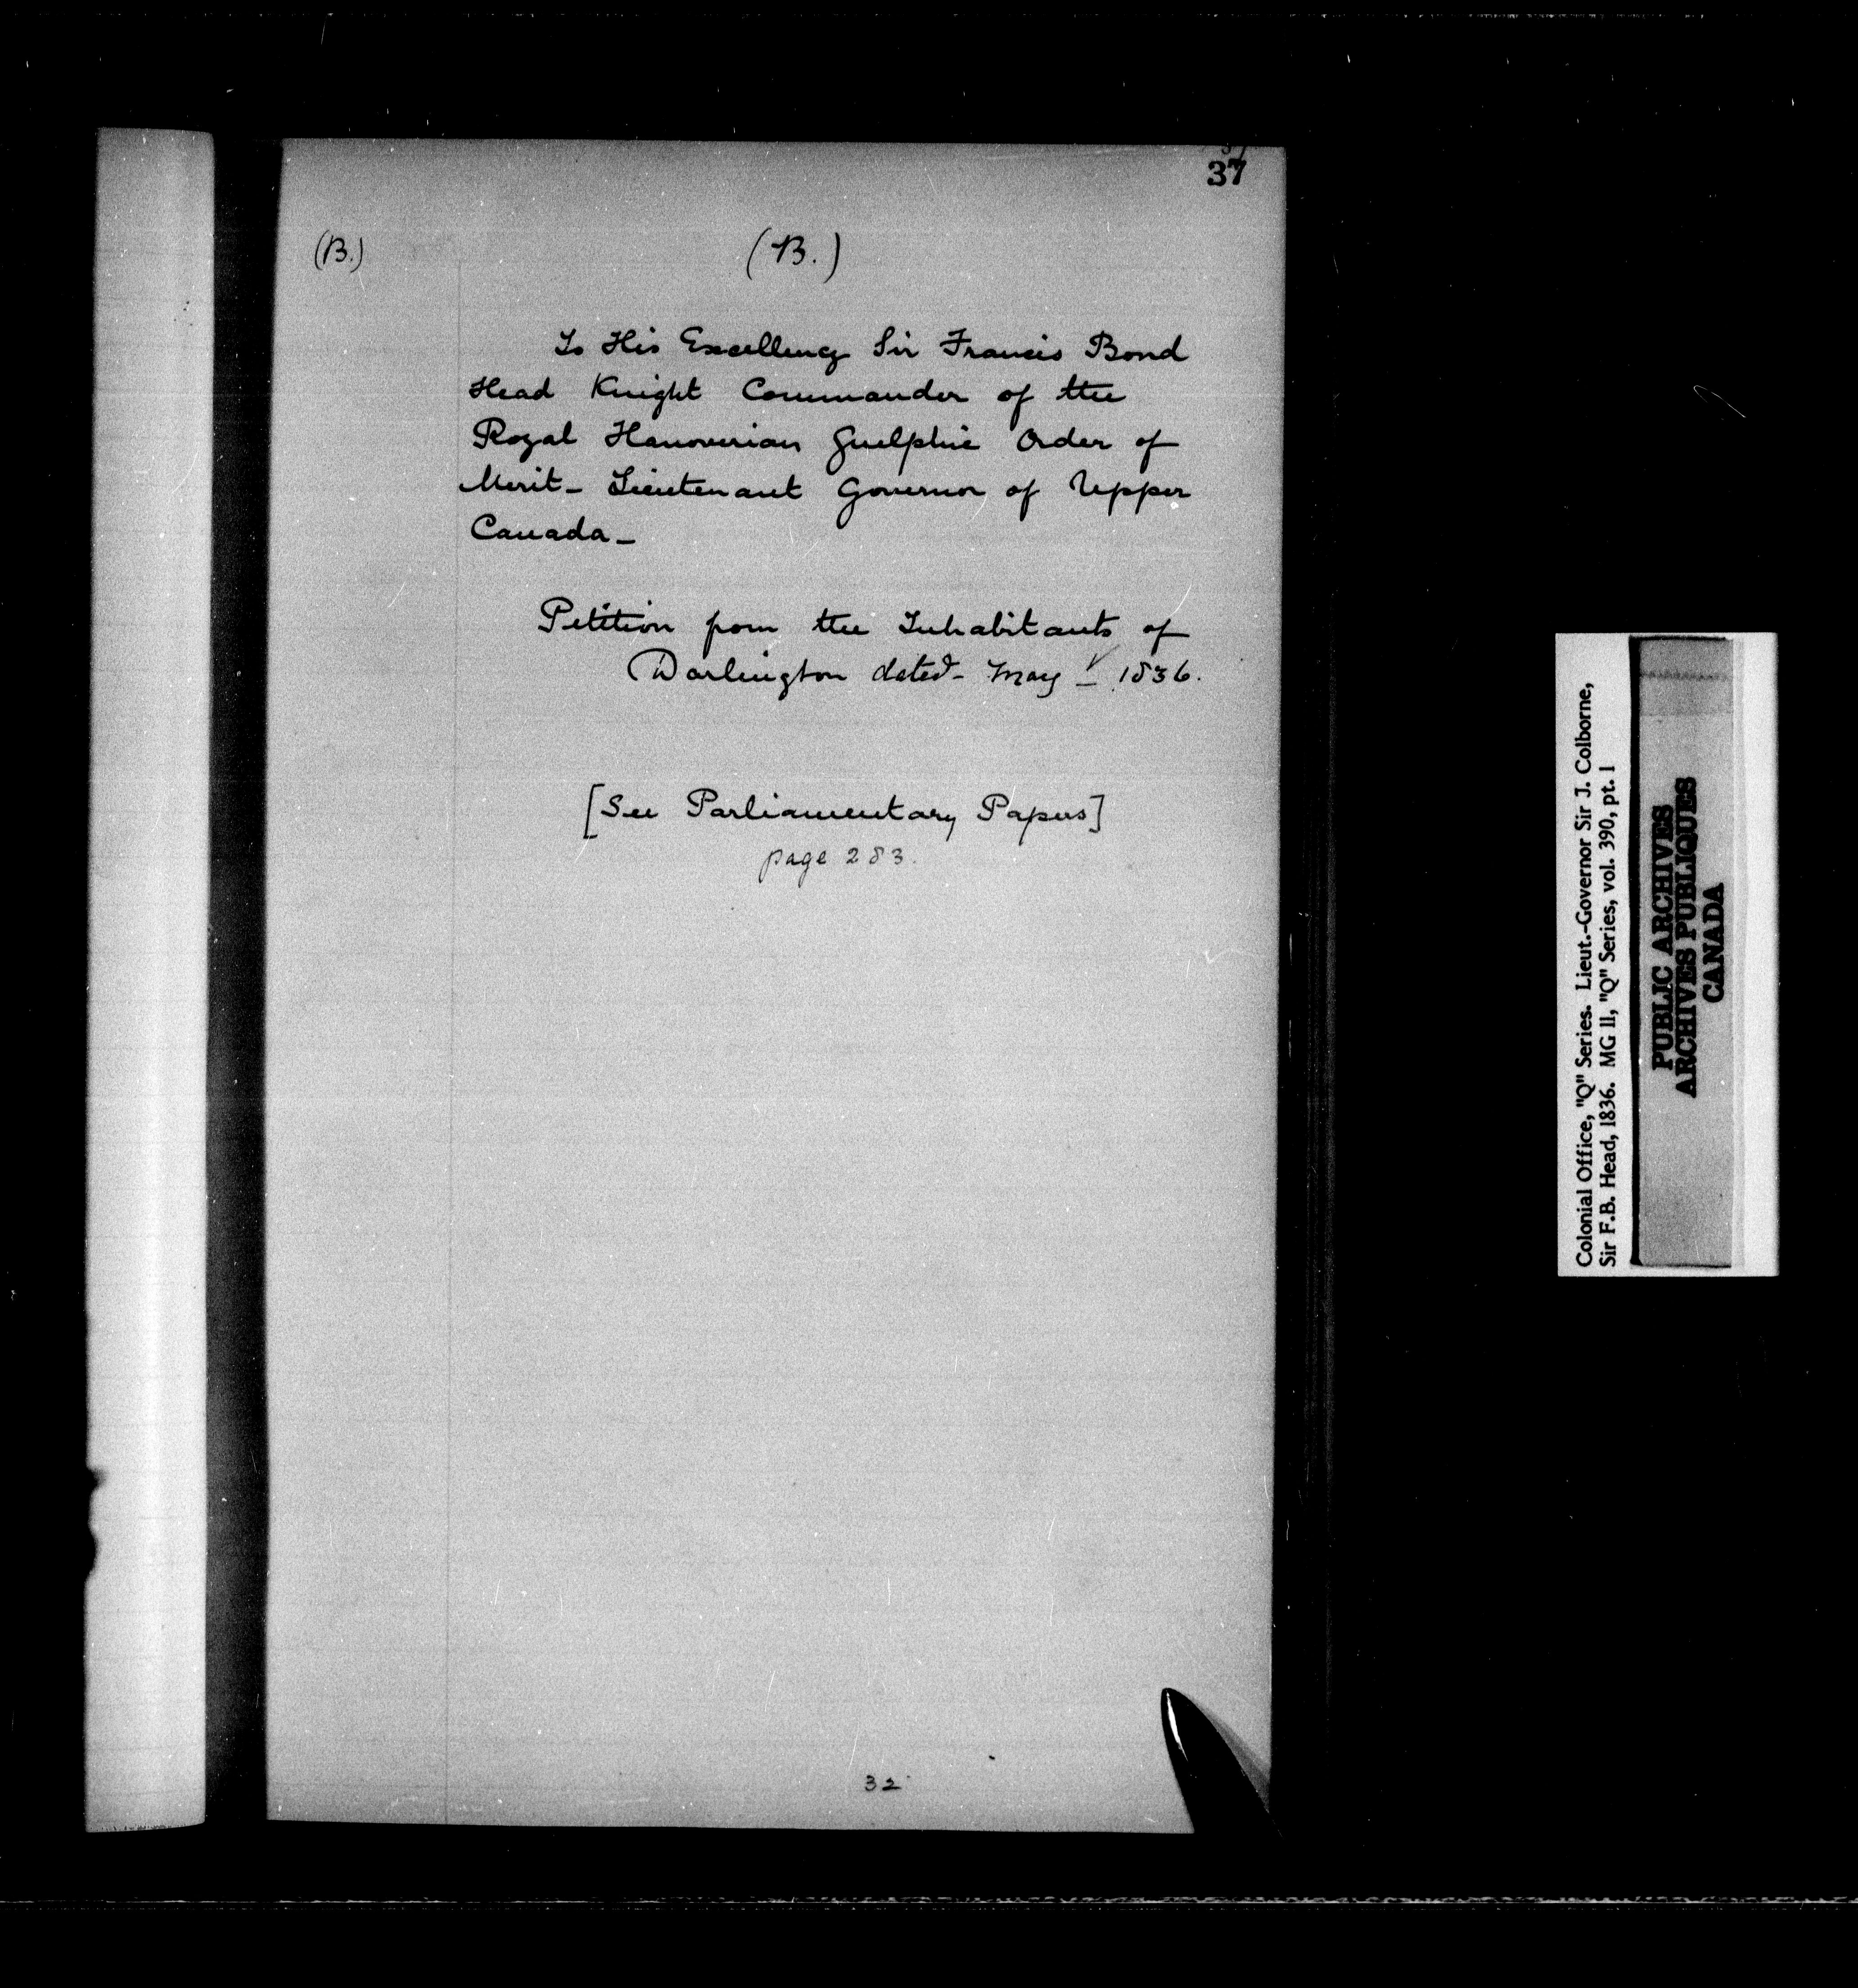 37
37
(B.) (B.)
To His Excellency Sir Francis Bond
Head Knight Commander of the
Royal Hanoverian Guelphic Order of
Merit - Lieutenant Governor of Upper
Canada -
Petition from the Inhabitants of
Darlington dated - May - 1836.
[See Parliamentary Papers]
page 283.
32
Colonial Office, "Q" Series. Lieut.-Governor Sir J. Colborne,
Sir F.B. Head, 1836. MG 11, "Q" Series, vol. 390, pt. 1
PUBLIC ARCHIVES
ARCHIVES PUBLIQUES
CANADA